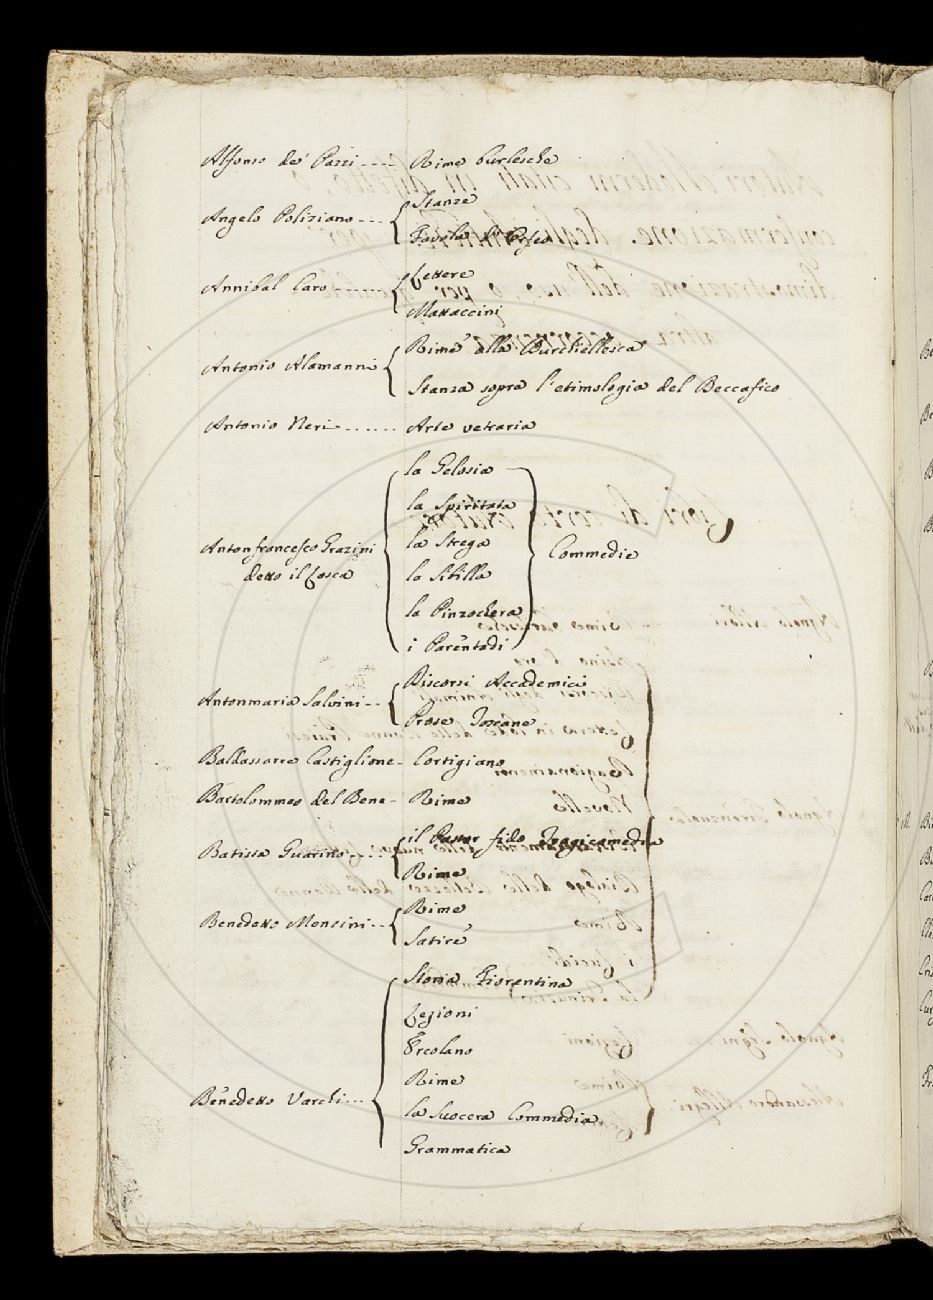 Alfonso de' Pazzi .... Rime burlesche
Angelo Poliziano ... { Stanze
Favola d'Orfeo
Annibal Caro ....... { Lettere
Mattaccini
Antonio Alamanni { Rime alla Burchiellesca
Stanza sopra l'etimologia del Beccafico
Antonio Neri ....... Arte vetraria
Antonfrancesco Grazini
detto il Lasca
la Gelosia
la Spiritata
la Strega
la Sibilla
la Pinzochera
i Parentadi
Commedie
Antonmaria Salvini .. { Discorsi Accademici
Prose Toscane
Baldassarre Castiglione - Cortigiano
Bartolommeo del Bene - Rime
Batista Guarino .... { il Pastor fido Tragicomedia
Rime
Benedetto Menzini .. { Rime
Satire
Benedetto Varchi ... { Storia Fiorentina
Lezioni
Ercolano
Rime
la Suocera Commedia
Grammatica